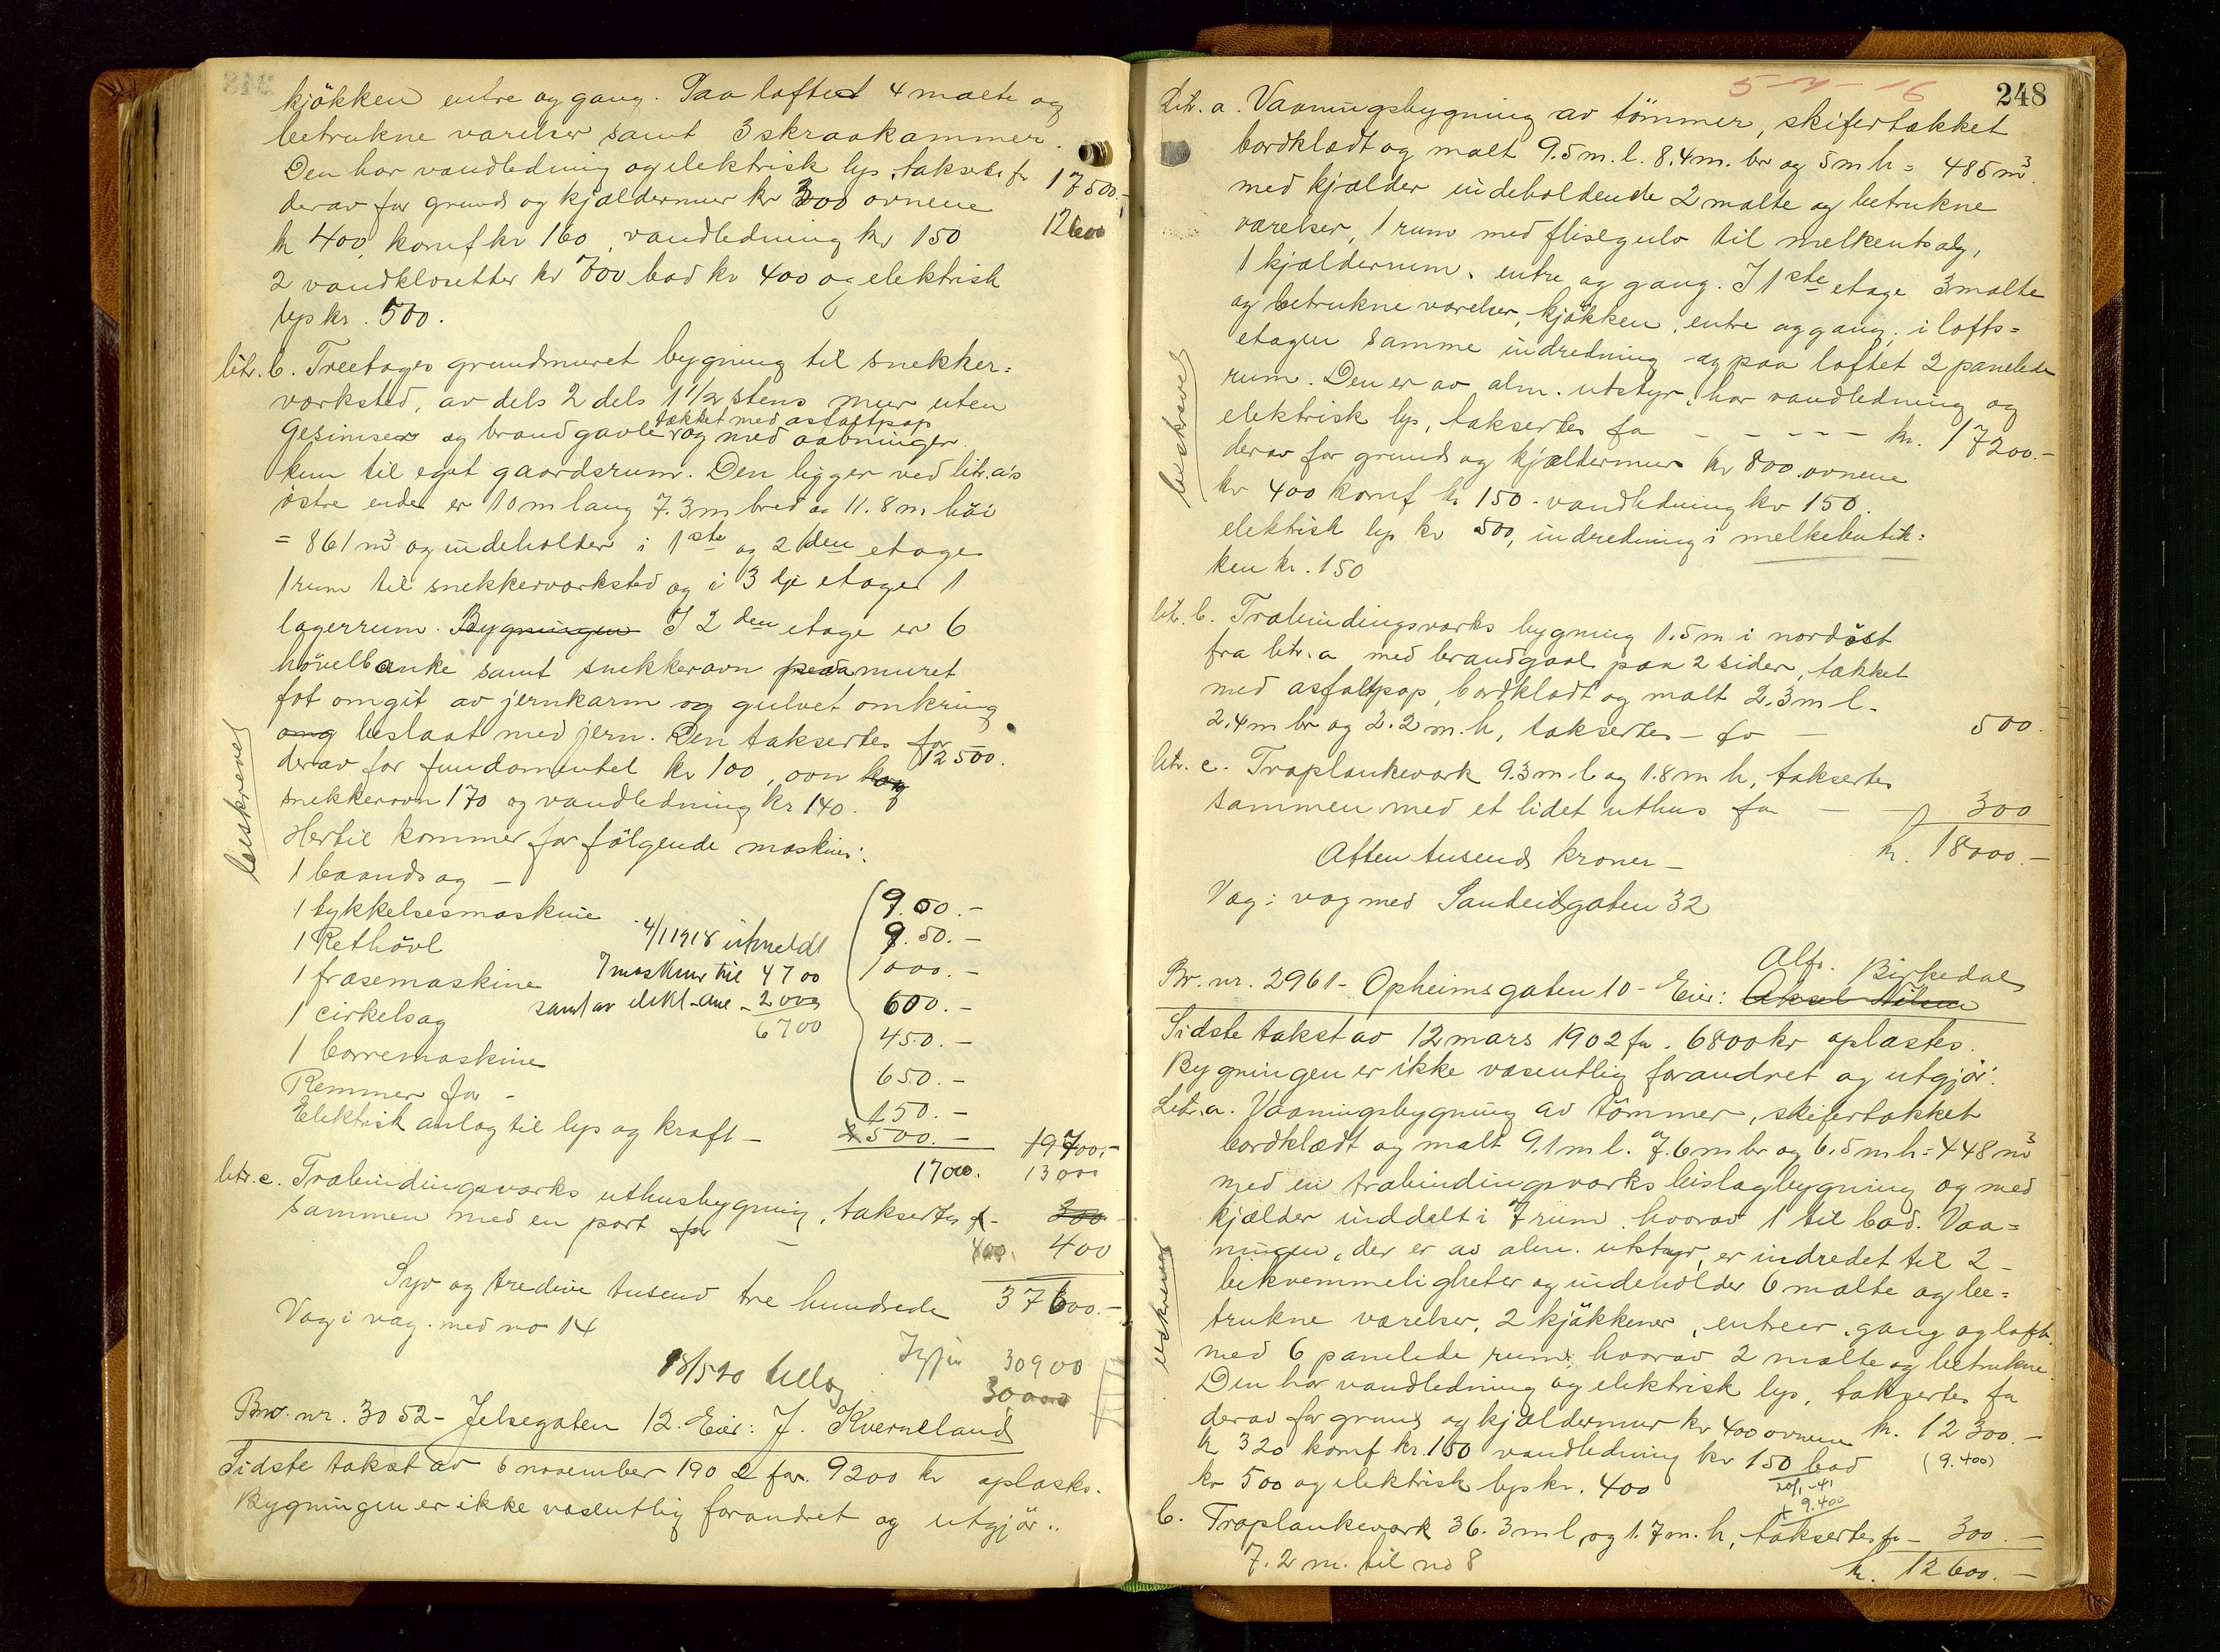 kjökken entre og gang. Paa loftet 4 malte og
betrukne værelser samt 3 skraakammer.
Den har vandledning og elektrisk lys, takseres fr 17500.-
derav for grund og kjældermur kr 300 ovnene 12600
kr 400, komf kr 160, vandledning kr 150
2 vandklosetter kr 700 bad kr 400 og elektrisk
lys kr. 500.
litr. b. Treetages grundmuret bygning til snekker=
værksted, av dels 2 dels 1 1/2 stens mur uten
tækket med asfaltpap
Gesimser og brandgavle og med aabninger
kun til eget gaardsrum. Den ligger ved litr. a's
östre ende er 10 m lang 7.3 m bred og 11.8 m höi
= 861 m³ og indeholder i 1ste og 2den etage
1 rum til snekkerværksted og i 3dje etage 1
lagerrum. Bygningen I 2den etage er 6
hövelbænke samt snekkerovn paa muret
fot omgit av jernkarm og gulvet omkring
beslaat med jern. Den taksertes for 12500.
derav for fundamentet kr 100, ovn
snekkerovn 170 og vandledning kr 140.
beskrevet
Hertil kommer for fölgende maskiner:
1 baandsag -
1 tykkelsesmaskine 900.-
1 Rethövl 4/1 1918 utmeldt 950.-
1 fræsemaskine 7 maskiner til 4700 1000.-
1 cirkelsag samt av elekt-anl - 2000 600.-
6700
1 borremaskine 450.-
650.-
Remmer for - 150.-
Elektrisk anlæg til lys og kraft - 500.- 19700.-
1700. 13000
litr. c. Træbindingsværks uthusbygning, taksertes f- 300
sammen med en port for - 400. 400
Syv og tredive tusend tre hundrede 37600.-
Væg i væg med no 14
18/5 20 tillæg 30900
30,000
Br. nr. 3052 - Jelsegaten 12. Eier: J. Kverneland
Sidste takst av 6 november 1902 for 9200 kr oplæstes.
Bygningen er ikke væsentlig forandret og utgjör..
248
Litr. a. Vaaningsbygning av tömmer, skifertækket
bordklædt og malt 9.5 m. l. 8.4 m. br og 5 m h = 485 m³.
med kjælder indeholdende 2 malte og betrukne
værelser, 1 rum med flisegulv til melkeutsalg,
1 kjælderrum, entre og gang. I 1ste etage 3 malte
og betrukne værelser, kjökken, entre og gang, i lofts=
etagen samme indredning og paa loftet 2 panelede
rum. Den er av alm. utstyr, har vandledning og
elektrisk lys, taksertes for - - - - - kr. 17200.-
derav for grund og kjældermur kr 800 ovnene
kr 400 komf kr 150 - vandledning kr 150.
elektrisk lys kr 500, indredning i melkebutik=
ken kr. 150
beskrevet
litr. b. Træbindingsværks bygning 1.5 m i nordöst
fra litr. a med brandgavl paa 2 sider, tækket
med asfaltpap, bordklædt og malt 2.3 m l.
2.4 m br og 2.2 m. h, taksertes - for - 500.
litr. c. Træplankeværk 9.3 m l og 1.8 m h, taksertes
sammen med et lidet uthus for - 300
Atten tusend kroner - kr. 18000.-
Væg i væg med Sandeidgaten 32
Alfr. Birkedal
Br. nr. 2961 - Opheimsgaten 10 - Eier: Aksel Nilsen
Sidste takst av 12 mars 1902 for 6800 kr oplæstes.
Bygningen er ikke væsentlig forandret og utgjör:
Litr. a. Vaaningsbygning av tömmer, skifertækket
bordklædt og malt 9.1 m l. 7.6 m br og 6.5 m h = 448 m³
med en træbindingsværks bislagbygning og med
kjælder inddelt i 7 rum, hvorav 1 til bad. Vaa=
ningen, der er av alm. utstyr, er indredet til 2
bekvemmeligheter og indeholder 6 malte og be=
trukne værelser, 2 kjökkener, entreer, gang og loft
med 6 panelede rum, hvorav 2 malte og betrukne.
Den har vandledning og elektrisk lys, taksertes for
derav for grund og kjældermur kr 400 ovnene kr. 12300.-
kr 320 komf kr. 150 vandledning kr 150 bad (9.400)
kr 500 og elektrisk lys kr. 400
20/1-41
+ 9.400
beskrevet
b. Træplankeværk 36.3 m l. og 1.7 m. h, taksertes for - 300.-
7.2 m. til no 8 kr. 12600.-